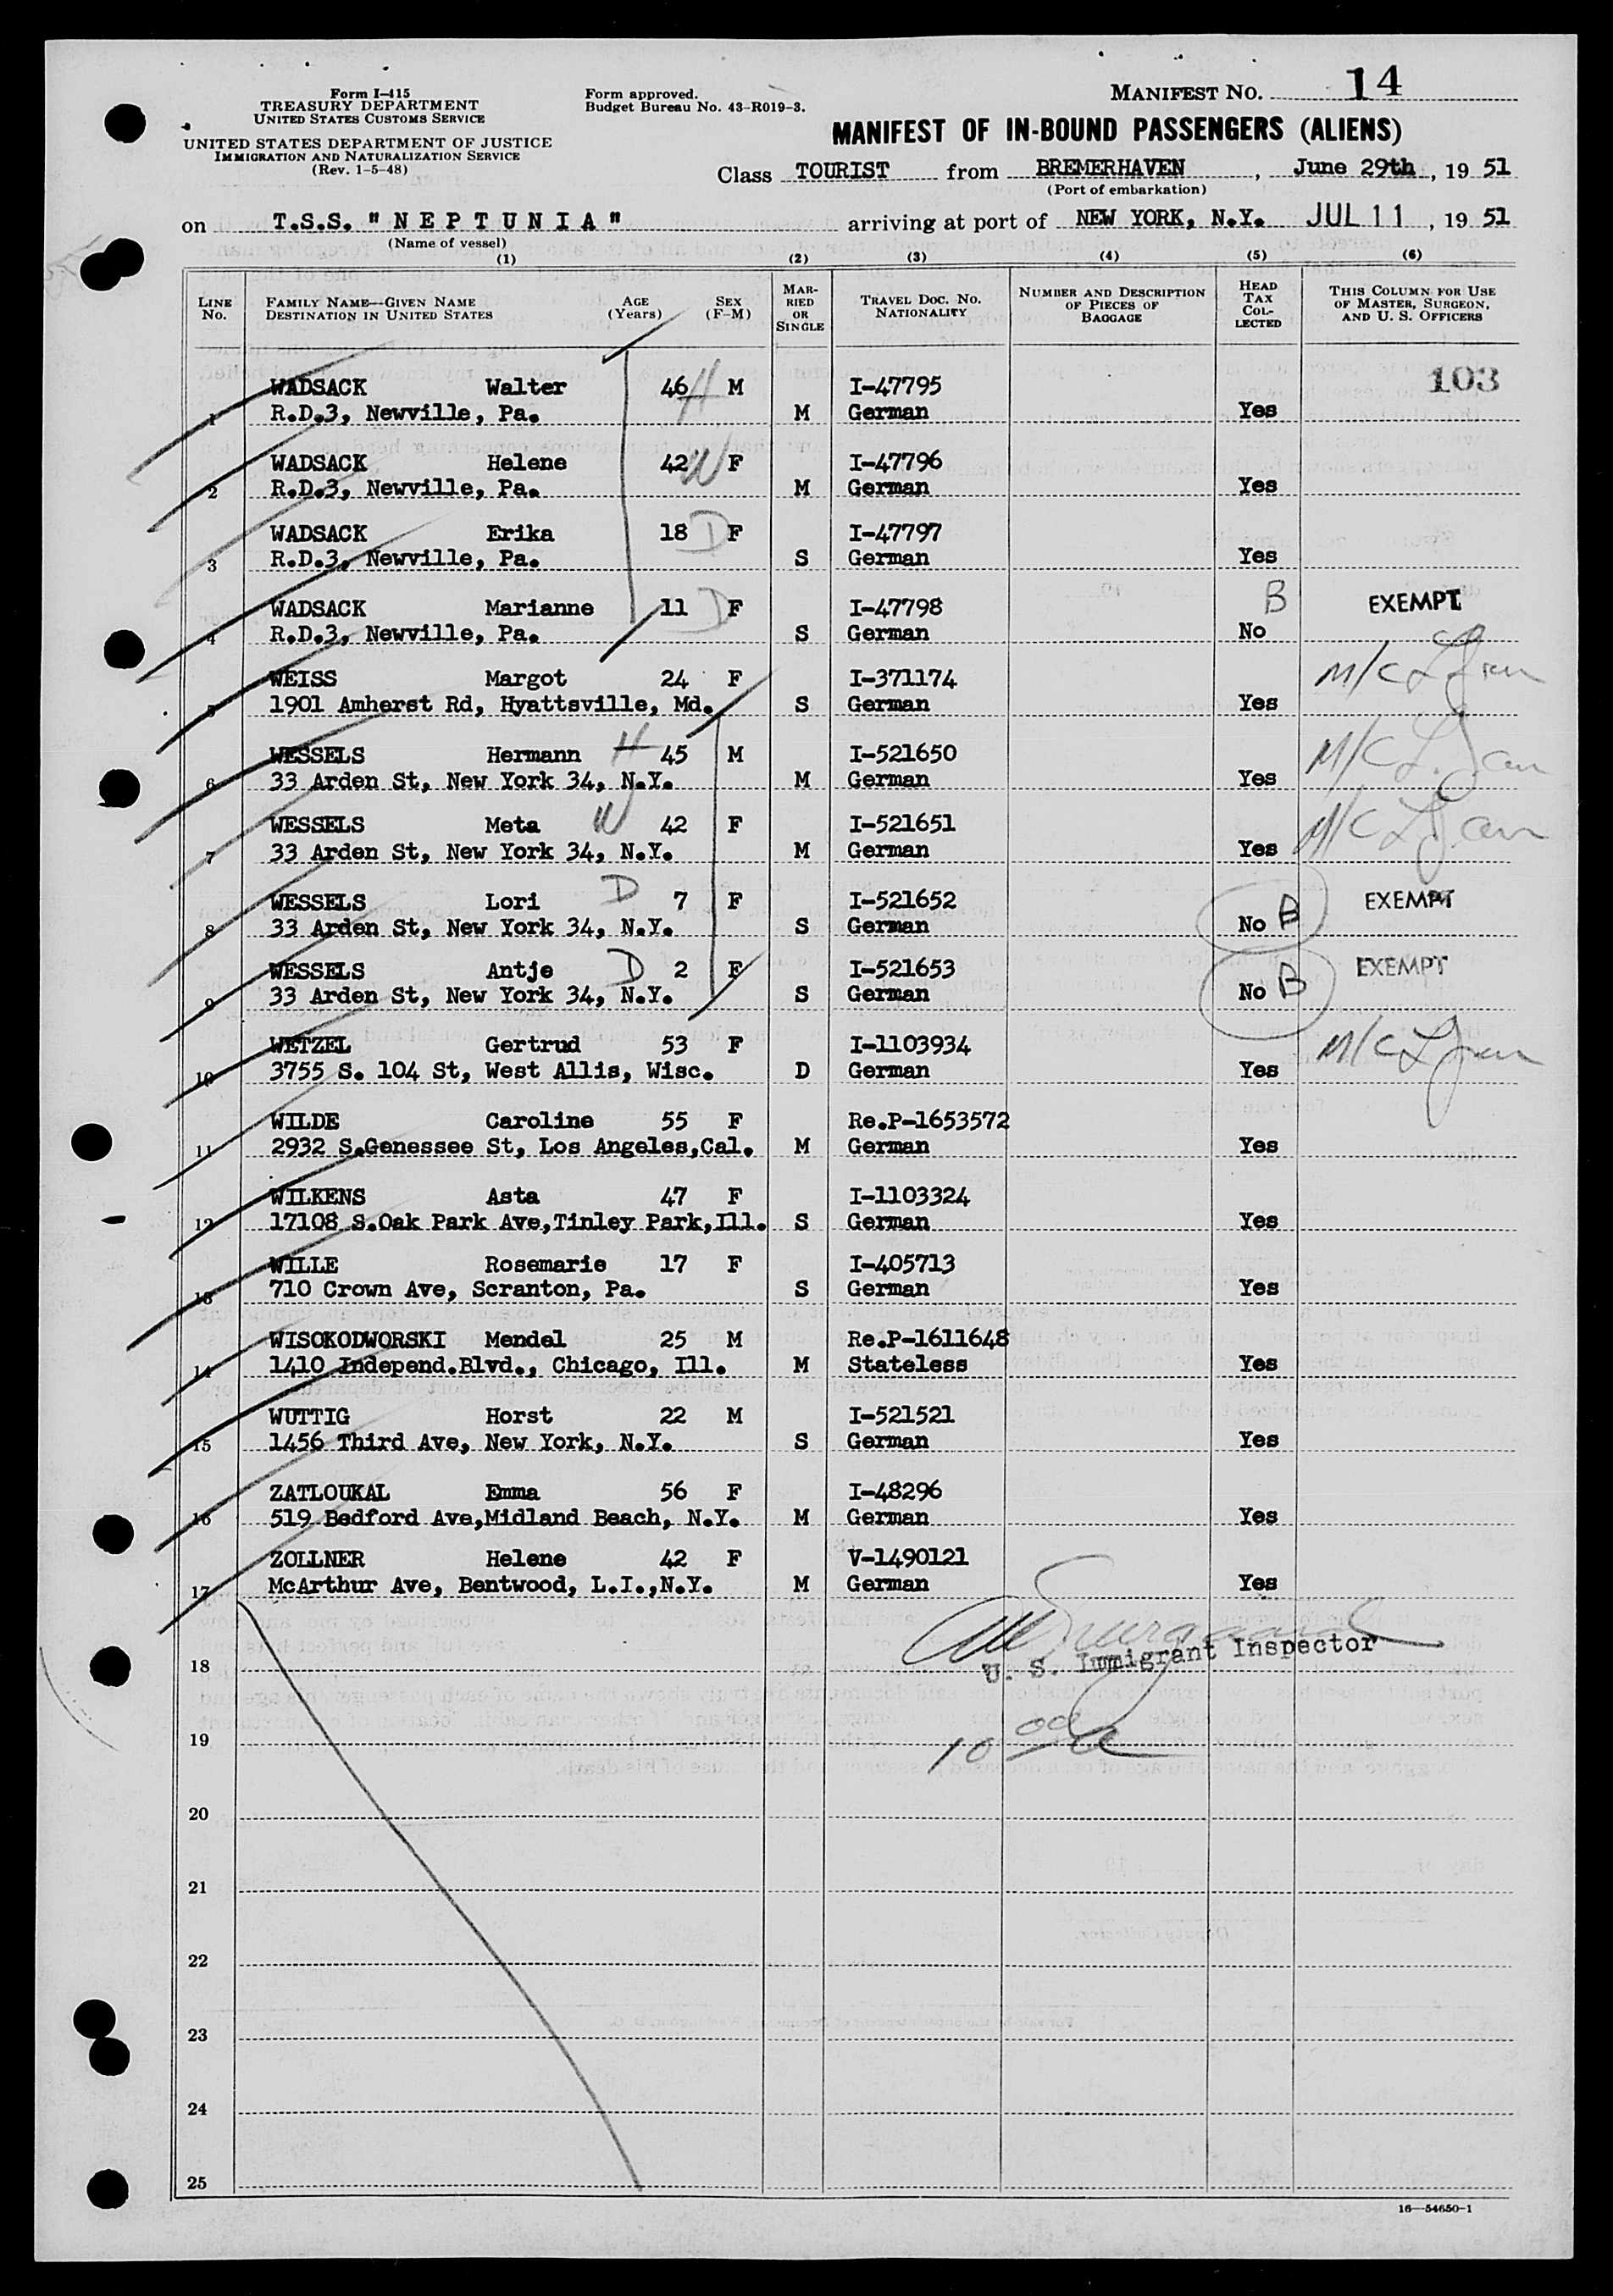 Form I-415
TREASURY DEPARTMENT
UNITED STATES CUSTOMS SERVICE
UNITED STATES DEPARTMENT OF JUSTICE
IMMIGRATION AND NATURALIZATION SERVICE
(Rev. 1-5-48)
Form approved.
Budget Bureau No. 43-R019-3.
MANIFEST NO. 14
MANIFEST OF IN-BOUND PASSENGERS (ALIENS)
Class TOURIST from BREMERHAVEN, June 29th, 19 51
(Port of embarkation)
on T.S.S. "NEPTUNIA" arriving at port of NEW YORK, N.Y. JUL 11, 19 51
(Name of vessel)
(1) (2) (3) (4) (5) (6)
LINE No. FAMILY NAME—GIVEN NAME DESTINATION IN UNITED STATES AGE (Years) SEX (F-M) MARRIED OR SINGLE TRAVEL DOC. NO. NATIONALITY NUMBER AND DESCRIPTION OF PIECES OF BAGGAGE HEAD TAX COLLECTED THIS COLUMN FOR USE OF MASTER, SURGEON, AND U. S. OFFICERS
103
WADSACK Walter 46 H M I-47795
1 R.D.3, Newville, Pa. M German Yes
WADSACK Helene 42 W F I-47796
2 R.D.3, Newville, Pa. M German Yes
WADSACK Erika 18 D F I-47797
3 R.D.3, Newville, Pa. S German Yes
WADSACK Marianne 11 D F I-47798 B EXEMPT
4 R.D.3, Newville, Pa. S German No
WEISS Margot 24 F I-371174
5 1901 Amherst Rd, Hyattsville, Md. S German Yes
WESSELS Hermann H 45 M I-521650
6 33 Arden St, New York 34, N.Y. M German Yes
WESSELS Meta W 42 F I-521651
7 33 Arden St, New York 34, N.Y. M German Yes
WESSELS Lori D 7 F I-521652 EXEMPT
8 33 Arden St, New York 34, N.Y. S German No B
WESSELS Antje D 2 F I-521653 EXEMPT
9 33 Arden St, New York 34, N.Y. S German No B
WETZEL Gertrud 53 F I-1103934
10 3755 S. 104 St, West Allis, Wisc. D German Yes
WILDE Caroline 55 F Re.P-1653572
11 2932 S.Genessee St, Los Angeles,Cal. M German Yes
WILKENS Asta 47 F I-1103324
12 17108 S.Oak Park Ave,Tinley Park,Ill. S German Yes
WILLE Rosemarie 17 F I-405713
13 710 Crown Ave, Scranton, Pa. S German Yes
WISOKODWORSKI Mendel 25 M Re.P-1611648
14 1410 Independ.Blvd., Chicago, Ill. M Stateless Yes
WUTTIG Horst 22 M I-521521
15 1456 Third Ave, New York, N.Y. S German Yes
ZATLOUKAL Emma 56 F I-48296
16 519 Bedford Ave,Midland Beach, N.Y. M German Yes
ZOLLNER Helene 42 F V-1490121
17 McArthur Ave, Bentwood, L.I.,N.Y. M German Yes
18 U. S. Immigrant Inspector
19 10 00 a
20
21
22
23
24
25
16—54650-1